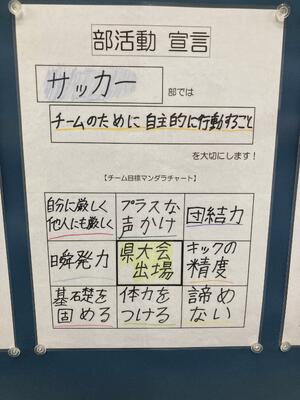 部活動 宣言
サッカー 部では
チームのために 自主的に行動すること
を大切にします！
【チーム目標マンダラチャート】
自分に厳しく プラスな 団結力
他人にも厳しく 声かけ
瞬発力 県大会 キックの
出場 精度
基礎を 体力を 諦め
固める つける ない